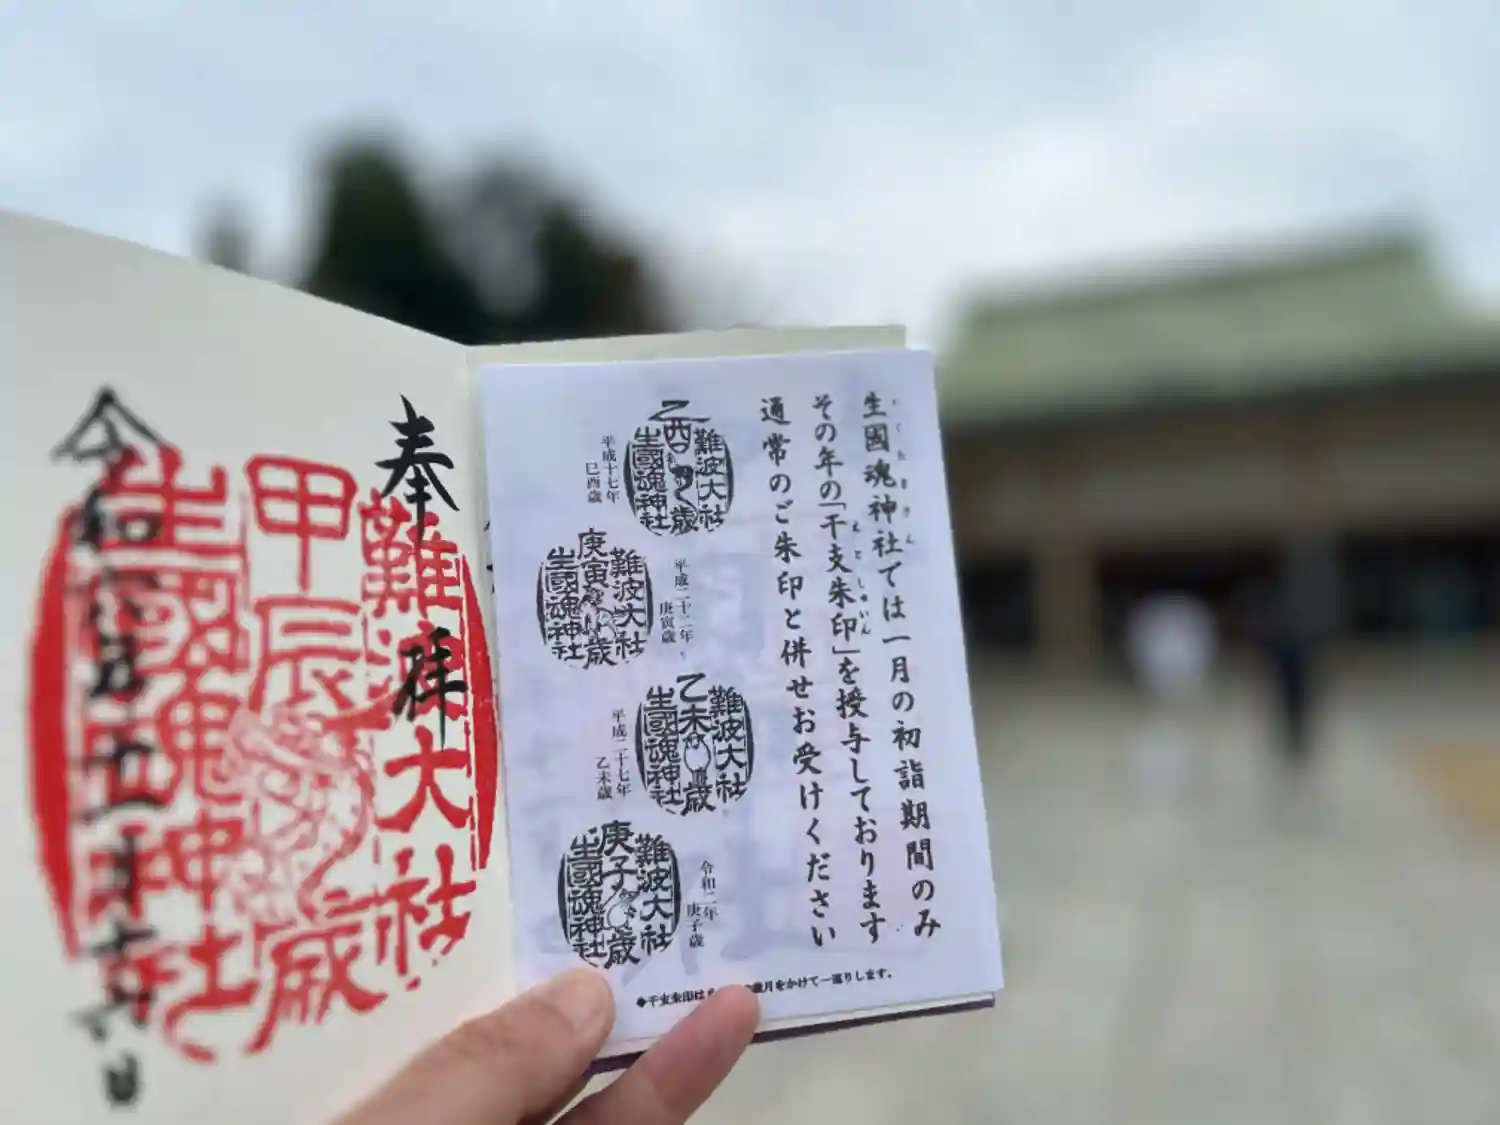 奉拝
難波大社
甲辰歳
生國魂神社
令和六年正月
いくたまさん
生國魂神社では一月の初詣期間のみ
えとしゅいん
その年の「干支朱印」を授与しております
通常のご朱印と併せお受けください
難波大社
乙酉歳
生國魂神社
平成十七年
巳酉歳
平成二十二年
庚寅歳
難波大社
庚寅歳
生國魂神社
難波大社
乙未歳
生國魂神社
平成二十七年
乙未歳
令和二年
庚子歳
難波大社
庚子歳
生國魂神社
◆干支朱印は 歳月をかけて一巡りします。